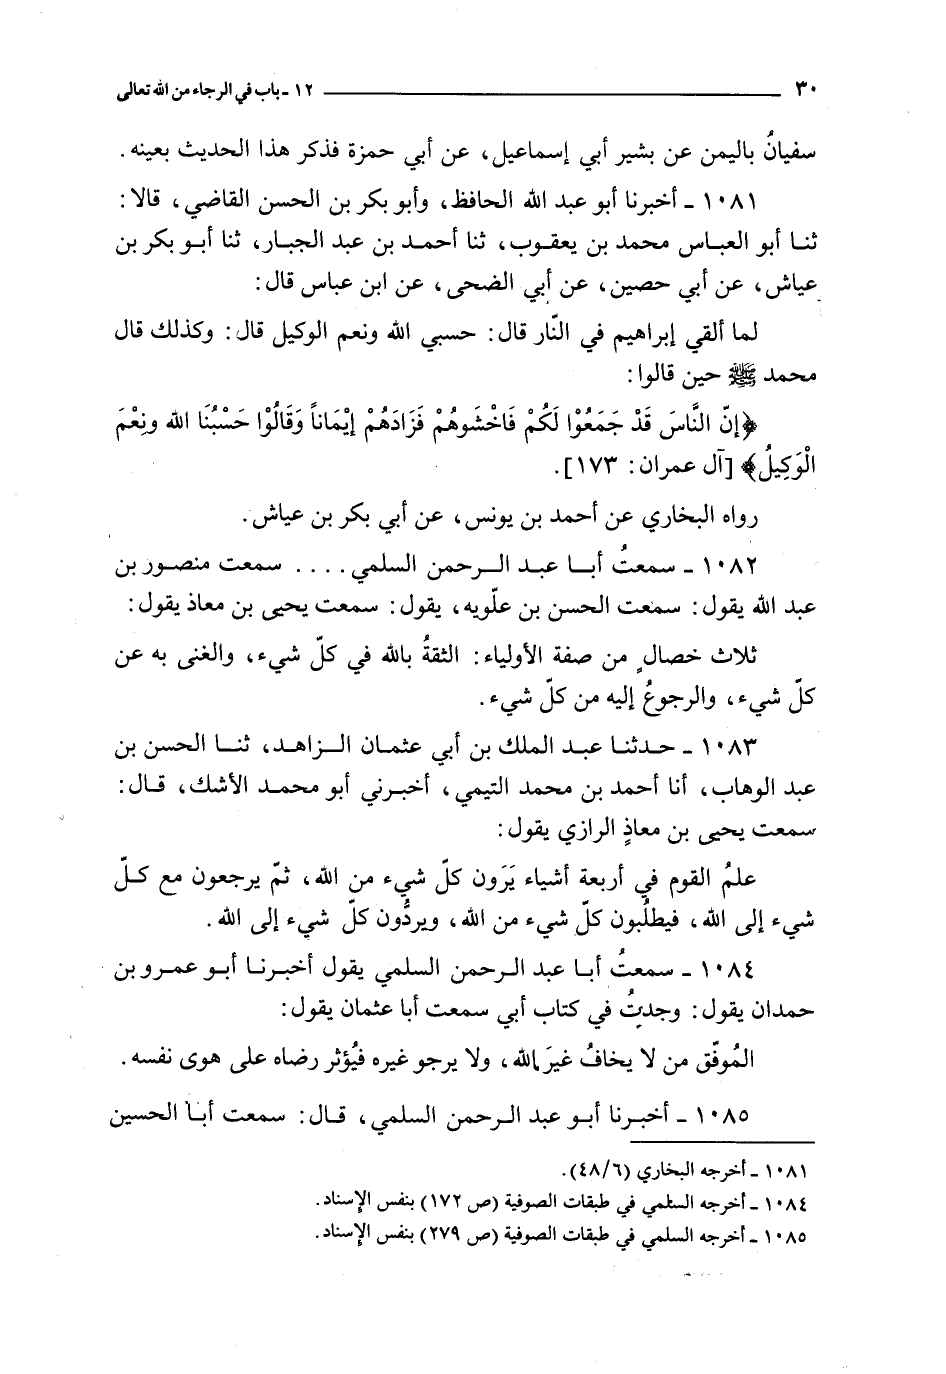 ٣٠ ـــــ ١٢ - باب في الرجاء من الله تعالى
سفيانُ باليمن عن بشير أبي إسماعيل، عن أبي حمزة فذكر هذا الحديث بعينه.
١٠٨١ - أخبرنا أبو عبد الله الحافظ، وأبو بكر بن الحسن القاضي، قالا:
ثنا أبو العباس محمد بن يعقوب، ثنا أحمد بن عبد الجبار، ثنا أبو بكر بن
عياش، عن أبي حصين، عن أبي الضحى، عن ابن عباس قال:
لما ألقي إبراهيم في النّار قال: حسبي الله ونعم الوكيل قال: وكذلك قال
محمد ﷺ حين قالوا:
﴿إنّ النَّاسَ قَدْ جَمَعُوْا لَكُمْ فَاخْشَوهُمْ فَزَادَهُمْ إيْمَاناً وَقَالُوْا حَسْبُنَا الله ونِعْمَ
الْوَكِيلُ﴾ [آل عمران: ١٧٣].
رواه البخاري عن أحمد بن يونس، عن أبي بكر بن عياش.
١٠٨٢ - سمعتُ أبا عبد الرحمن السلمي.... سمعت منصور بن
عبد الله يقول: سمعت الحسن بن علّويه، يقول: سمعت يحيى بن معاذ يقول:
ثلاث خصالٍ من صفة الأولياء: الثقةُ بالله في كلّ شيء، والغنى به عن
كلّ شيء، والرجوعُ إليه من كلّ شيء.
١٠٨٣ - حدثنا عبد الملك بن أبي عثمان الزاهد، ثنا الحسن بن
عبد الوهاب، أنا أحمد بن محمد التيمي، أخبرني أبو محمد الأشك، قال:
سمعت يحيى بن معاذٍ الرازي يقول:
علمُ القوم في أربعة أشياء يَرَون كلّ شيء من الله، ثمّ يرجعون مع كلّ
شيء إلى الله، فيطلُبون كلّ شيء من الله، ويردُّون كلّ شيء إلى الله.
١٠٨٤ - سمعتُ أبا عبد الرحمن السلمي يقول أخبرنا أبو عمرو بن
حمدان يقول: وجدتُ في كتاب أبي سمعت أبا عثمان يقول:
المُوفّق من لا يخافُ غيرَ الله، ولا يرجو غيره فيُؤثر رضاه على هوى نفسه.
١٠٨٥ - أخبرنا أبو عبد الرحمن السلمي، قال: سمعت أبا الحسين
١٠٨١ - أخرجه البخاري (٤٨/٦).
١٠٨٤ - أخرجه السلمي في طبقات الصوفية (ص ١٧٢) بنفس الإسناد.
١٠٨٥ - أخرجه السلمي في طبقات الصوفية (ص ٢٧٩) بنفس الإسناد.